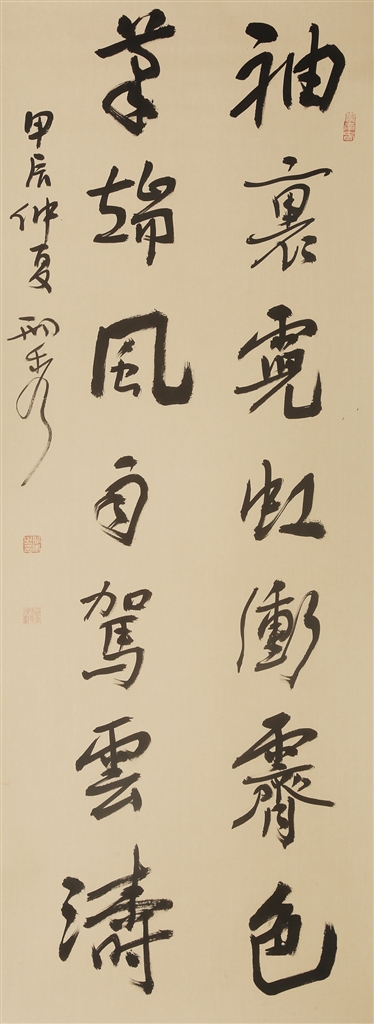 袖裏霓虹衝霽色
筆端風雨駕雲濤
甲辰仲夏